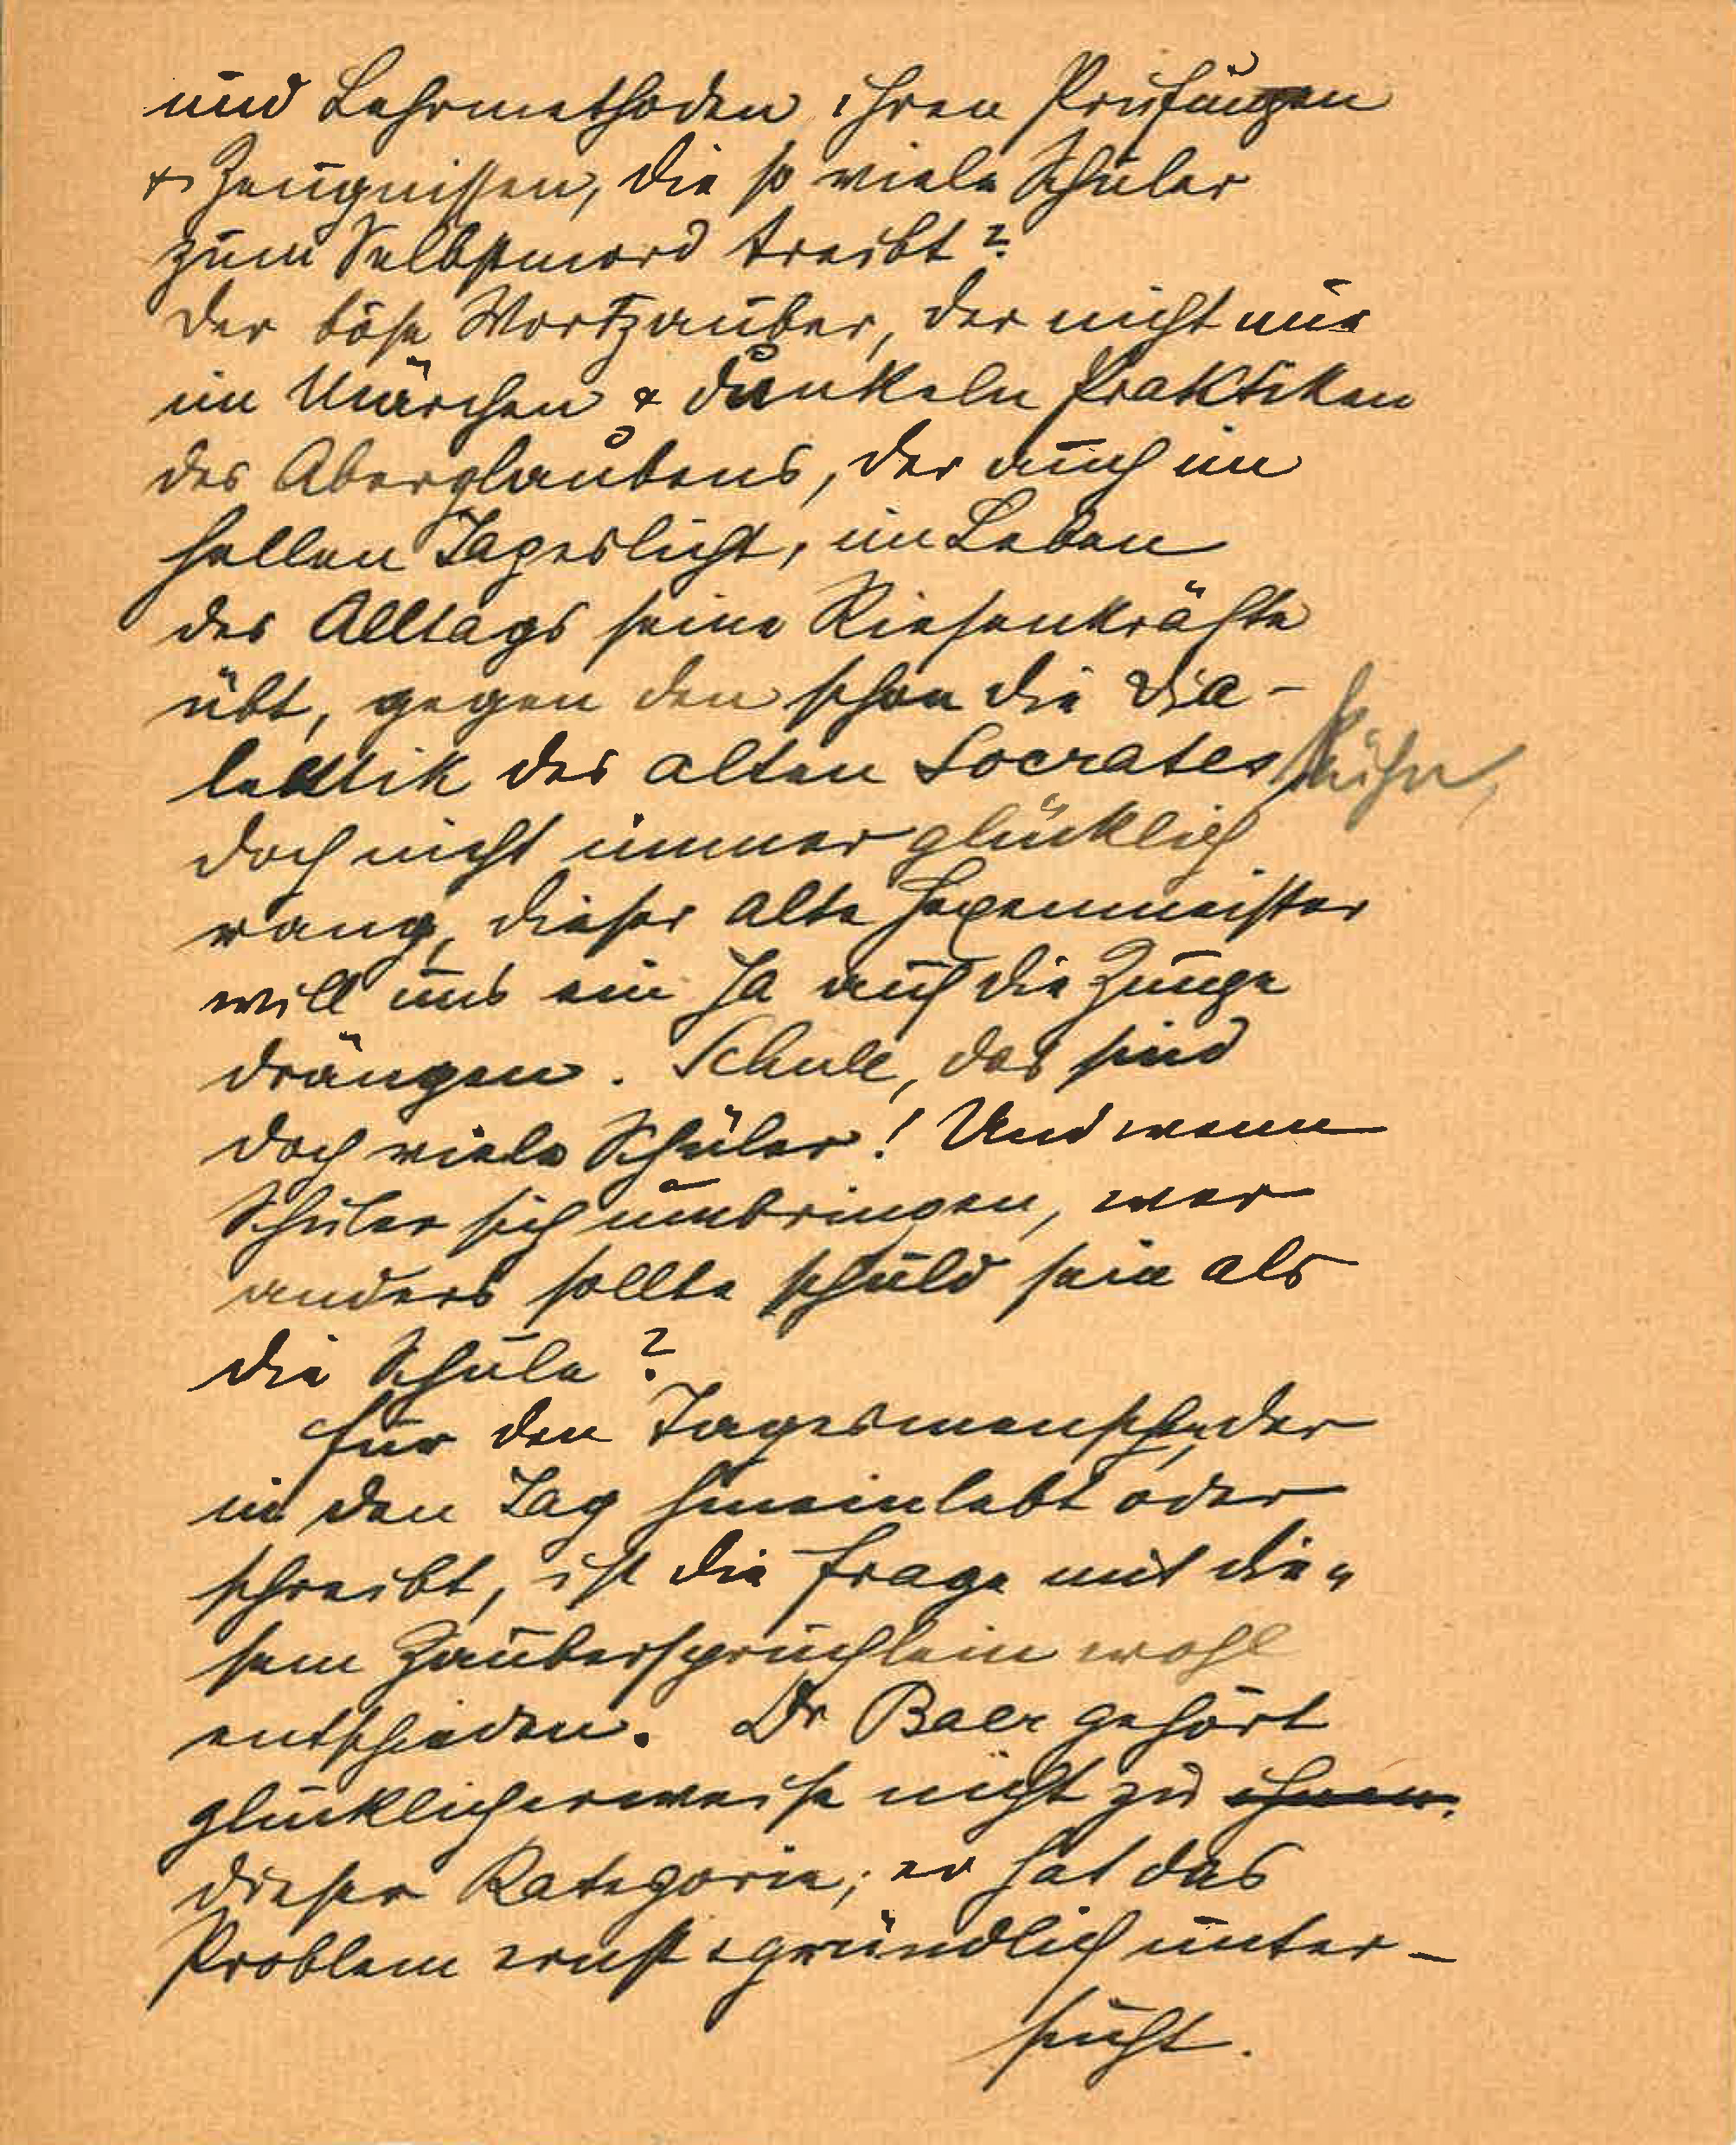 und Lehrmethoden, ihren Prüfungen
& Zeugnissen, die so viele Schüler
zum Selbstmord treibt?
Der böse Wortzauber, der nicht nur
im Märchen & dunkeln Praktiken
des Aberglaubens, der auch im
hellen Tageslicht, im Leben
des Alltags seine Riesenkräfte
übt, gegen den schon die Dia-
lektik des alten Socrates kühn,
doch nicht immer glücklich
rang, dieser alte Hexenmeister
will uns ein Ja auf die Zunge
drängen. Schule, das sind
doch viele Schüler! Und wenn
Schüler sich umbringen, wer
anders sollte schuld sein als
die Schule?
Für den Tagesmenschen, der
in den Tag hineinlebt oder
schreibt, ist die Frage mit die-
sem Zaubersprüchlein wohl
entschieden. Dr Baer gehört
glücklicherweise nicht zu ihnen.
dieser Kategorie; er hat das
Problem ernst & gründlich unter-
sucht.